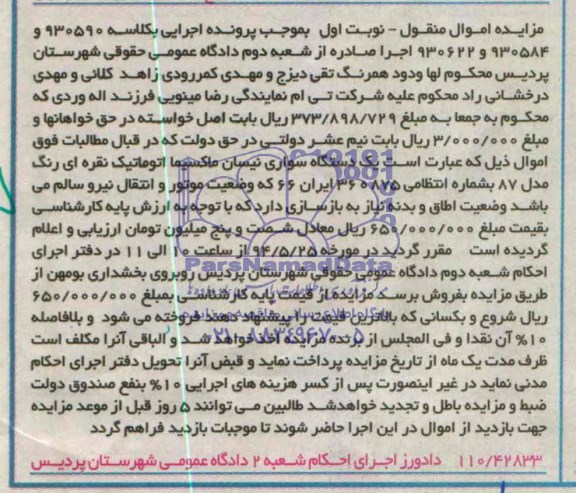 مزایده اموال منقول - نوبت اول بموجب پرونده اجرایی بکلاسه ۹۳۰۵۹۰ و
۹۳۰۵۸۴ و ۹۳۰۶۲۲ اجرا صادره از شعبه دوم دادگاه عمومی حقوقی شهرستان
پردیس محکوم لها ودود همرنگ تقی دیزج و مهدی کمررودی زاهد کلائی و مهدی
درخشانی راد محکوم علیه شرکت تی ام نمایندگی رضا مینویی فرزند اله وردی که
محکوم به جمعا به مبلغ ۳۷۳/۸۹۸/۷۲۹ ریال بابت اصل خواسته در حق خواهانها و
مبلغ ۳/۰۰۰/۰۰۰ ریال بابت نیم عشر دولتی در حق دولت که در قبال مطالبات فوق
اموال ذیل که عبارت است یک دستگاه سواری نیسان ماکسیما اتوماتیک نقره ای رنگ
مدل ۸۷ بشماره انتظامی ۸۷۵ ه ۳۶ ایران ۶۶ که وضعیت موتور و انتقال نیرو سالم می
باشد وضعیت اطاق و بدنه نیاز به بازسازی دارد که با توجه به ارزش پایه کارشناسی
بقیمت مبلغ ۶۵۰/۰۰۰/۰۰۰ ریال معادل شصت و پنج میلیون تومان ارزیابی و اعلام
گردیده است مقرر گردید در مورخه ۹۴/۵/۲۵ از ساعت ۱۰ الی ۱۱ در دفتر اجرای
احکام شعبه دوم دادگاه عمومی حقوقی شهرستان پردیس روبروی بخشداری بومهن از
طریق مزایده بفروش برسد مزایده از قیمت پایه کارشناسی بمبلغ ۶۵۰/۰۰۰/۰۰۰
ریال شروع و بکسانی که بالاترین قیمت را پیشنهاد دهند فروخته می شود و بلافاصله
۱۰% آن نقدا و فی المجلس از برنده مزایده اخذ خواهد شد و الباقی آنرا مکلف است
ظرف مدت یک ماه از تاریخ مزایده پرداخت نماید و قبض آنرا تحویل دفتر اجرای احکام
مدنی نماید در غیر اینصورت پس از کسر هزینه های اجرایی ۱۰% بنفع صندوق دولت
ضبط و مزایده باطل و تجدید خواهدشد طالبین می توانند ۵ روز قبل از موعد مزایده
جهت بازدید از اموال در این اجرا حاضر شوند تا موجبات بازدید فراهم گردد
۱۱۰/۴۲۸۳۳ دادورز اجرای احکام شعبه ۲ دادگاه عمومی شهرستان پردیس
ParsNamadData
۰۲۱-۸۸۳۴۹۶۷۰-۵